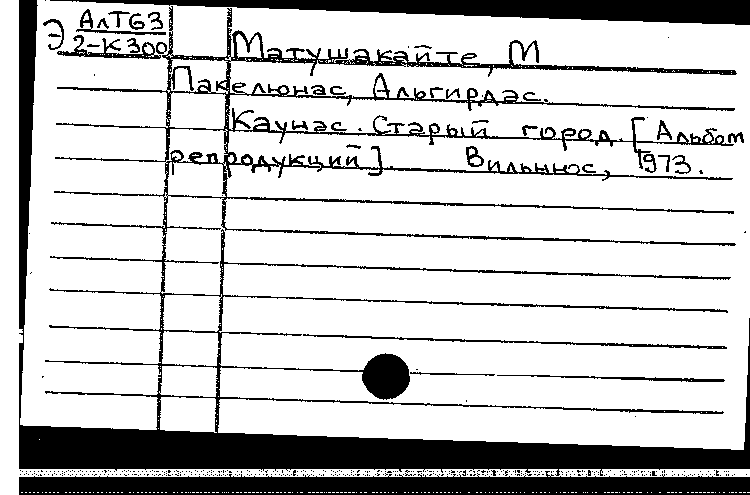 Э АлТ63
2-К300
Матушакайте, М
Пакелюнас, Альгирдас.
Каунас. Старый город. [Альбом
репродукций]. Вильнюс, 1973.